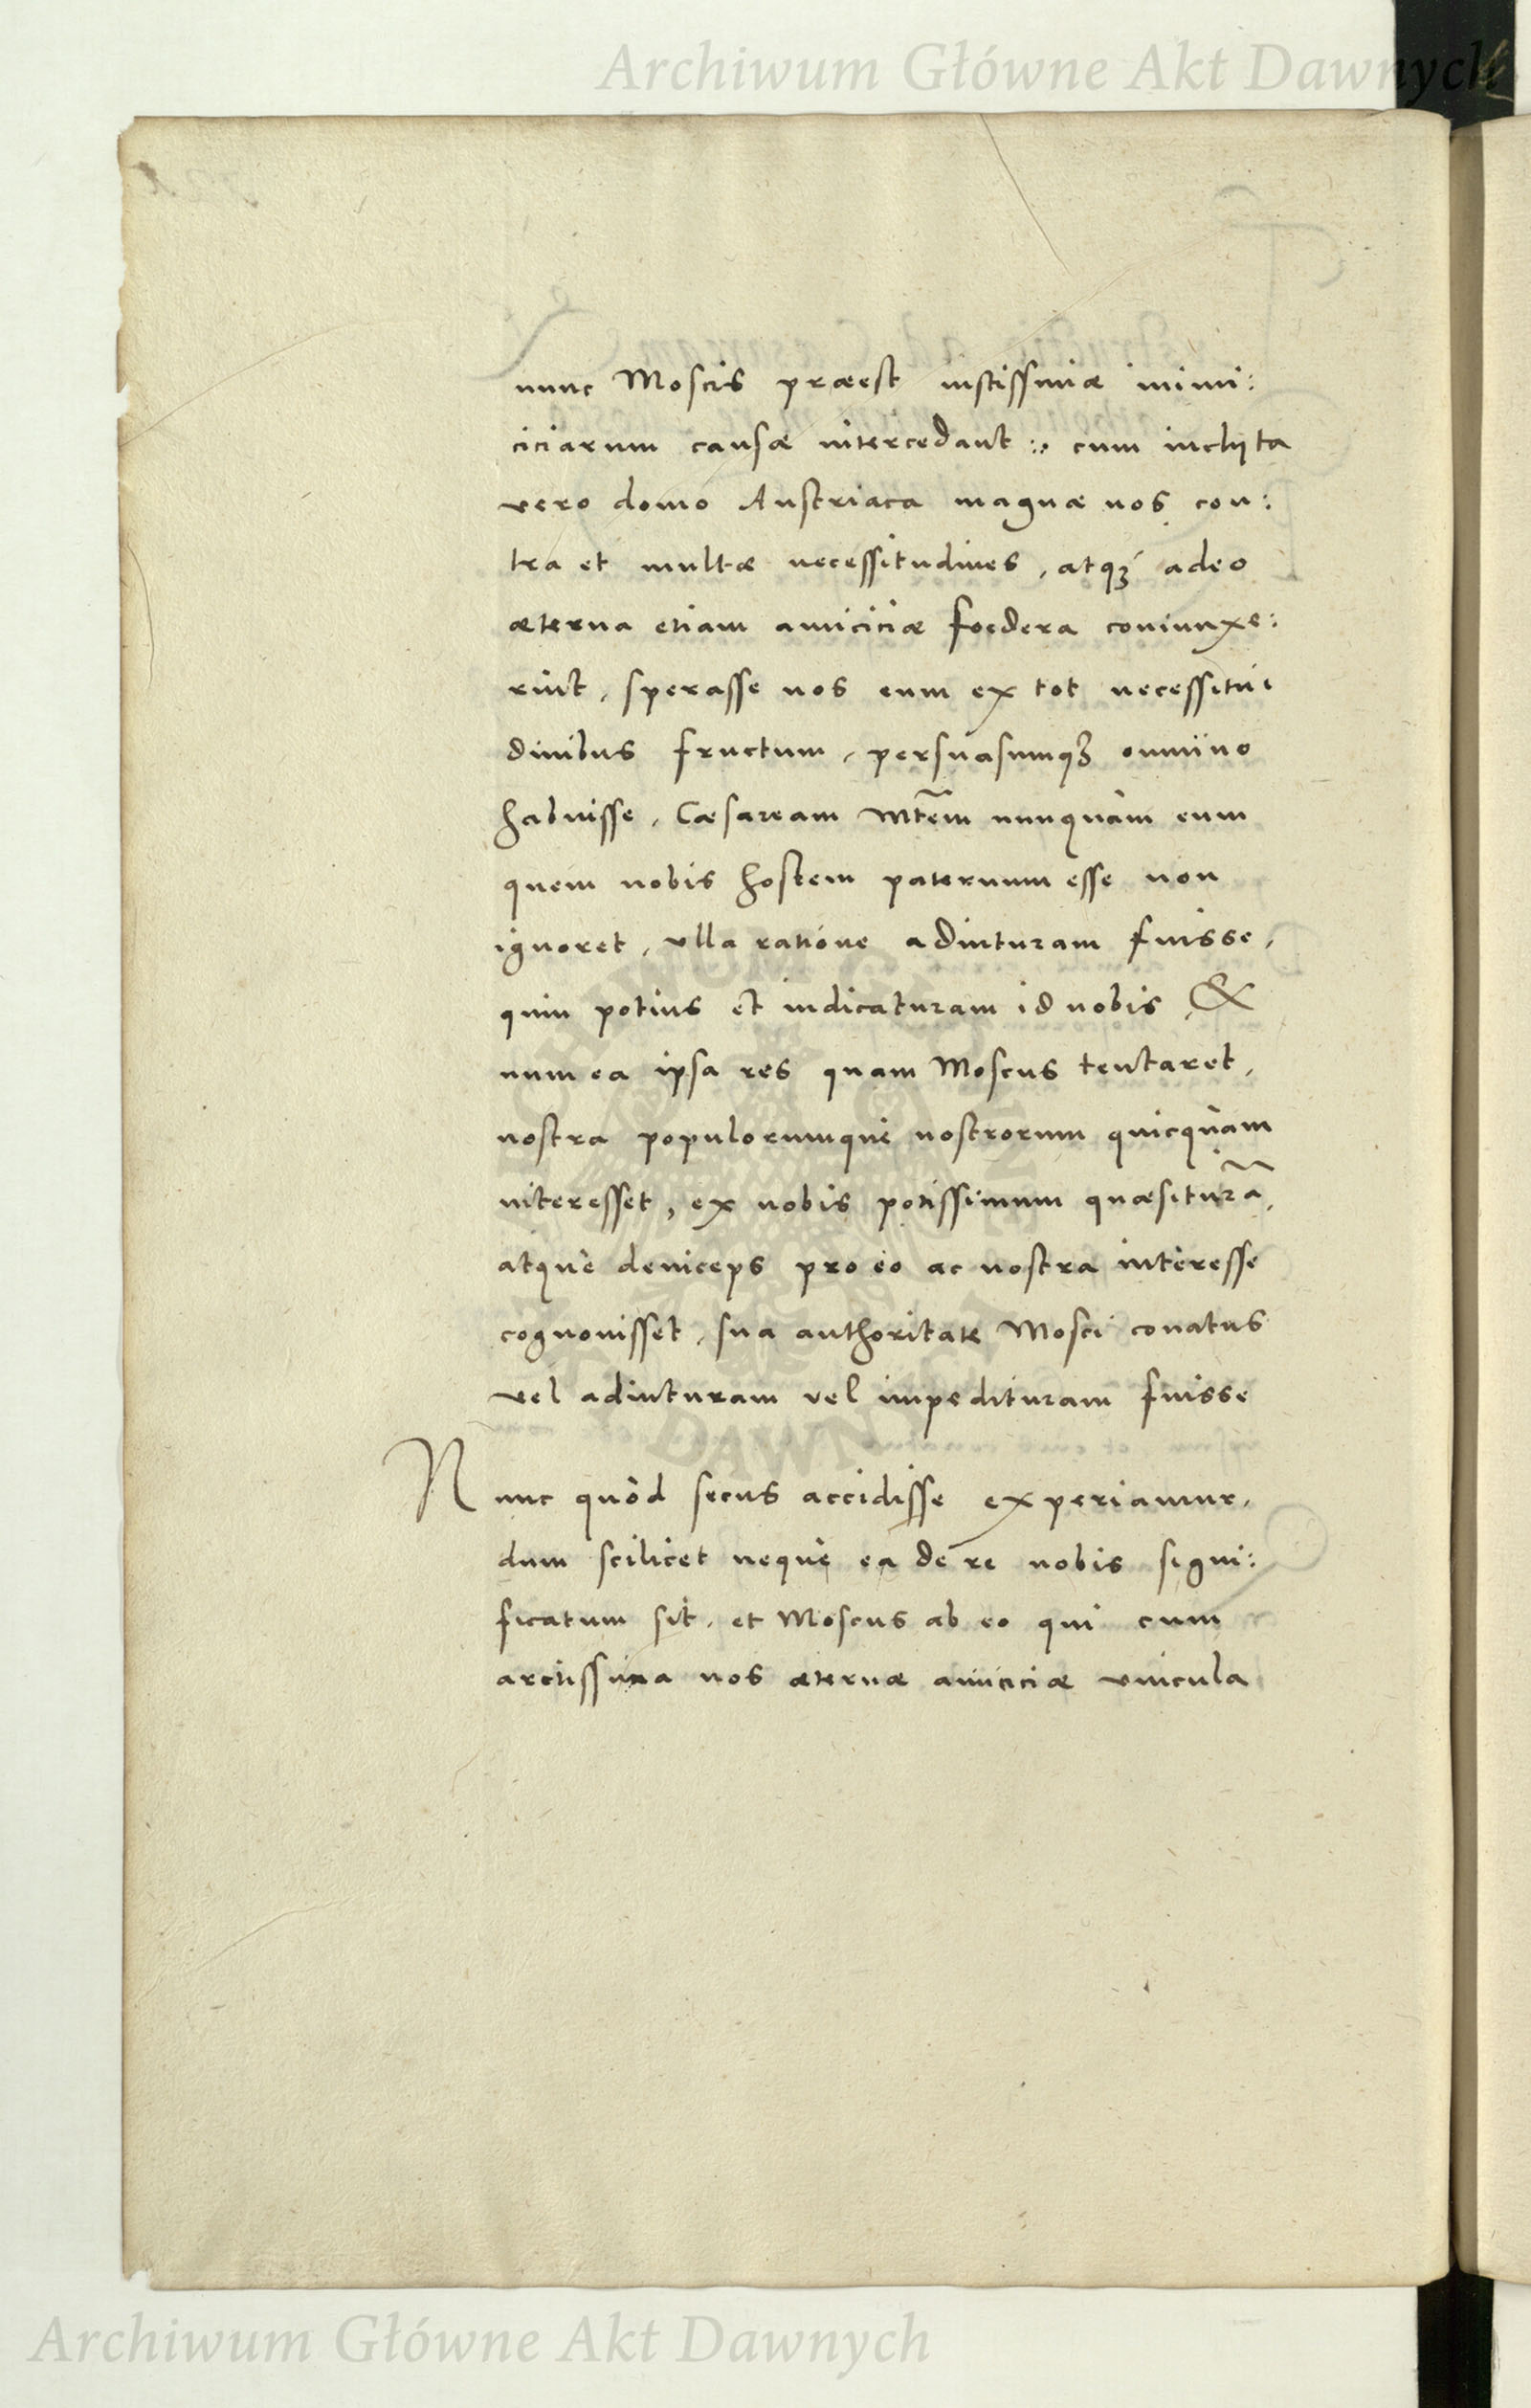 Archiwum Główne Akt Dawnych
nunc Moscis præest iustissimæ inimi:
ciciarum causæ intercedant :, cum inclijta
vero domo Austriaca magnæ nos con:
tra et multæ necessitudines, atqꝫ adeo
æterna etiam amiciciæ foedera coniunxe:
rint, sperasse nos eum ex tot necessitu:
dinibus fructum, persuasumqꝫ omnino
habuisse, Cæsaream Mtem nunquàm eum
quem nobis hostem paternum esse non
ignoret, vlla ratione adiuturam fuisse,
quin potius et indicaturam id nobis, &
num ea ipsa res quam Moscus tentaret,
nostra populorumque nostrorum quicquàm
interesset, ex nobis potissimum quæsiturã,
atquè deinceps pro eo ac nostra interesse
cognouisset, sua authoritate Mosci conatus
vel adiuturam vel impedituram fuisse
Nunc quòd secus accidisse experiamur,
dum scilicet nequè ea de re nobis signi:
ficatum sit, et Moscus ab eo qui cum
arctissima nos æternæ amiciciæ vincula
Archiwum Główne Akt Dawnych